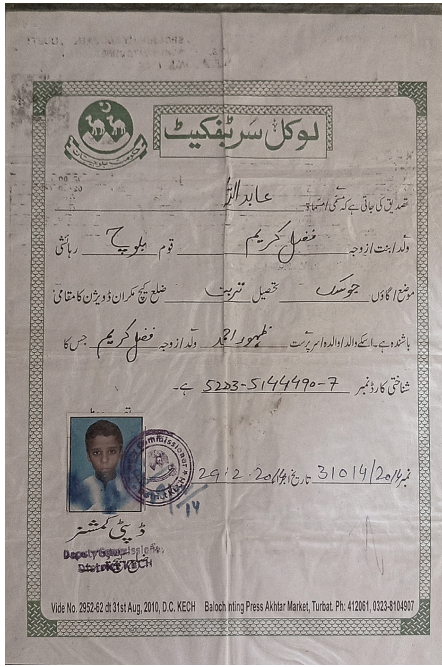 لوکل سرٹیفکیٹ
تصدیق کی جاتی ہے کہ مسمی / مسماۃ عابد اللہ
ولد / بنت / زوجہ فضل کریم قوم بلوچ رہائشی
موضع / گاؤں جوسک تحصیل تربت ضلع کیچ مکران ڈویژن کا مقامی
باشندہ ہے۔ اسکے والد / والدہ / سرپرست ظہور احمد ولد / زوجہ فضل کریم جس کا
شناختی کارڈ نمبر 52203-5144490-7 ہے۔
نمبر 31014/2014 تاریخ اجراء 29.2.2014
Commissioner
KECH
ڈپٹی کمشنر
Deputy Commissioner
District KECH
Vide No. 2952-62 dt 31st Aug, 2010, D.C. KECH Balochinting Press Akhtar Market, Turbat. Ph: 412061, 0323-8104907